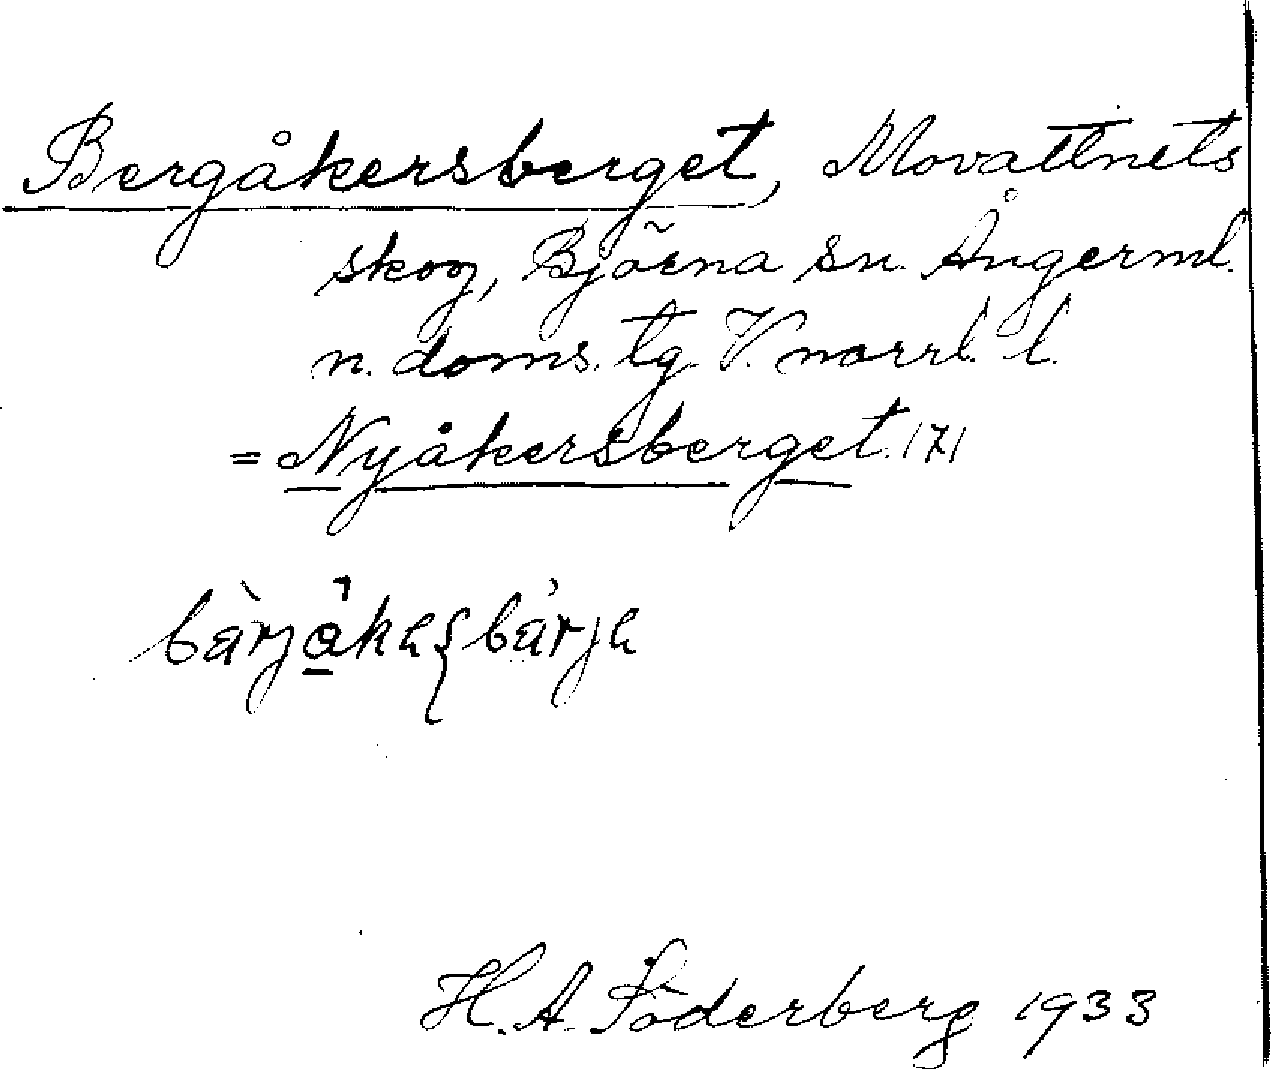 Bergåkersberget, Movattnets
skog, Björna sn. Ångerml.
n. doms. tg. V. norrl. l.
= Nyåkersberget. 171
H. A. Söderberg 1933